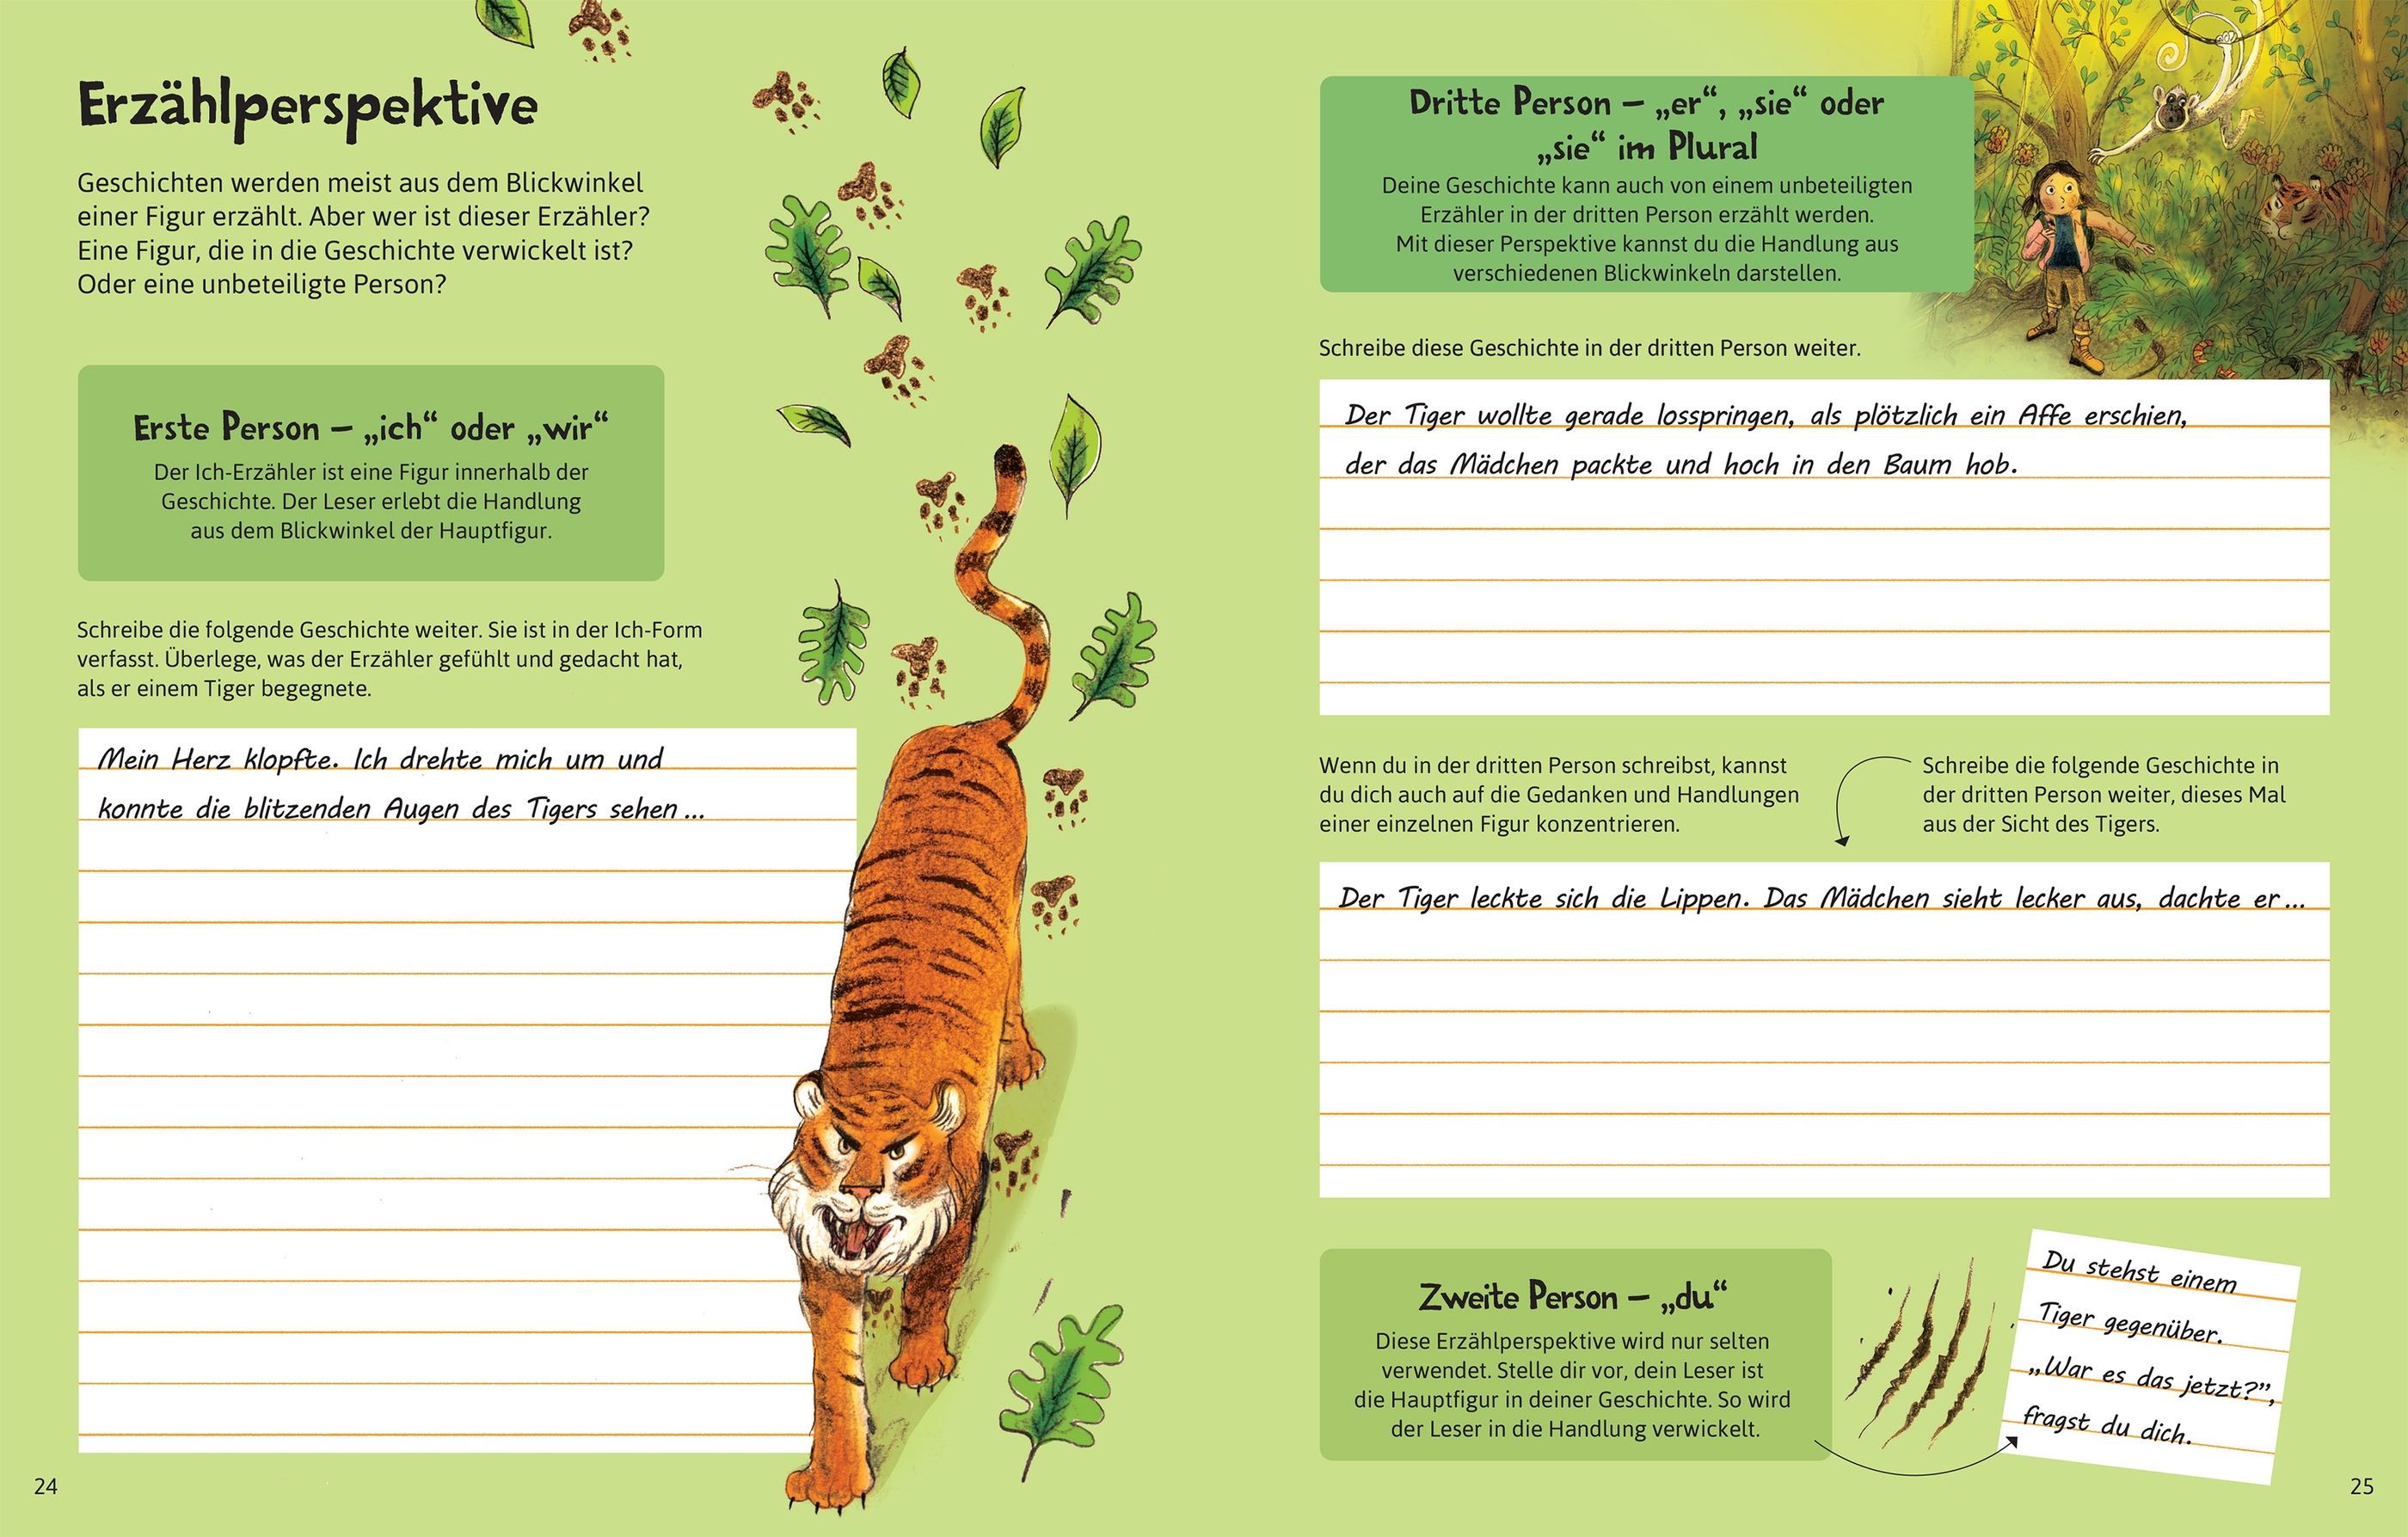 Erzählperspektive
Geschichten werden meist aus dem Blickwinkel
einer Figur erzählt. Aber wer ist dieser Erzähler?
Eine Figur, die in die Geschichte verwickelt ist?
Oder eine unbeteiligte Person?
Erste Person – „ich“ oder „wir“
Der Ich-Erzähler ist eine Figur innerhalb der
Geschichte. Der Leser erlebt die Handlung
aus dem Blickwinkel der Hauptfigur.
Schreibe die folgende Geschichte weiter. Sie ist in der Ich-Form
verfasst. Überlege, was der Erzähler gefühlt und gedacht hat,
als er einem Tiger begegnete.
Mein Herz klopfte. Ich drehte mich um und
konnte die blitzenden Augen des Tigers sehen ...
24
Dritte Person – „er“, „sie“ oder
„sie“ im Plural
Deine Geschichte kann auch von einem unbeteiligten
Erzähler in der dritten Person erzählt werden.
Mit dieser Perspektive kannst du die Handlung aus
verschiedenen Blickwinkeln darstellen.
Schreibe diese Geschichte in der dritten Person weiter.
Der Tiger wollte gerade losspringen, als plötzlich ein Affe erschien,
der das Mädchen packte und hoch in den Baum hob.
Wenn du in der dritten Person schreibst, kannst
du dich auch auf die Gedanken und Handlungen
einer einzelnen Figur konzentrieren.
Schreibe die folgende Geschichte in
der dritten Person weiter, dieses Mal
aus der Sicht des Tigers.
Der Tiger leckte sich die Lippen. Das Mädchen sieht lecker aus, dachte er ...
Zweite Person – „du“
Diese Erzählperspektive wird nur selten
verwendet. Stelle dir vor, dein Leser ist
die Hauptfigur in deiner Geschichte. So wird
der Leser in die Handlung verwickelt.
Du stehst einem
Tiger gegenüber.
„War es das jetzt?”,
fragst du dich.
25